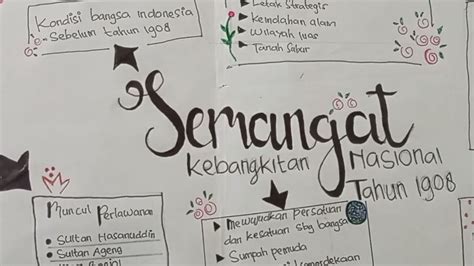 Kondisi bangsa Indonesia
Sebelum tahun 1908
Letak Strategis
Keindahan alam
Wilayah luas
Tanah Subur
Semangat
Kebangkitan Nasional
Tahun 1908
Muncul Perlawanan
Sultan Hasanuddin
Sultan Ageng
Mewujudkan Persatuan
dan kesatuan sbg bangsa
Sumpah pemuda
kemerdekaan